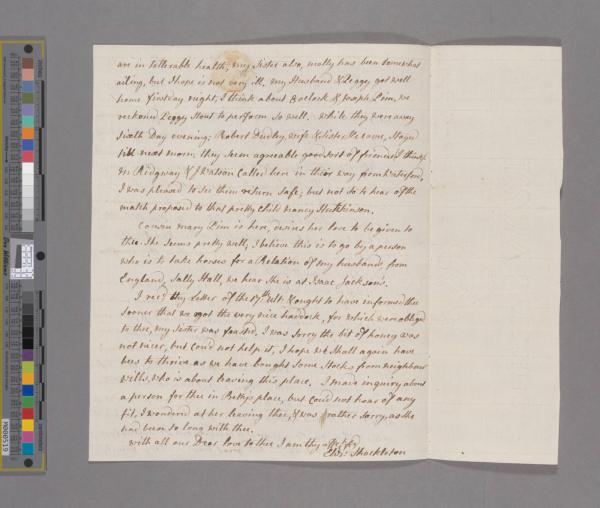 are in tollerable health, my sister also, molly has been somewhat
ailing, but I hope is not very ill. my Husband & Peggy, got well
home firstday night, I think about 8 oclock & Joseph Lim, we
reckoned Peggy stout to perform so well. while they were away
sixth Day evening; Robert Dudley, wife & sister Me came, stayed
till next morn, they seem agreeable good sort of friends I think
M Ridgway & J Watson called here in their way from Waterford,
I was pleased to see them return safe; but not so to hear of the
match proposed to that pretty child nancy Hutchinson.
Cousen mary Lim is here, desires her love to be given to
thee. she seems pretty well, I believe this is to go by a person
who is to take horses for a Relation of my husbands, from
England, Sally Hall, we hear she is at Isaac Jacksons.
I recd thy Letter of the 17th ult & ought to have informed thee
sooner that we got the very nice haddock, for which we are obliged
to thee, my Sister was feasted, I was sorry the bit of honey was
not nicer, but coud not help it, I hope we shall again have
bees to thrive as we have bought some stocks from neighbour
wills, who is about leaving this place. I made inquiry about
a person for thee in Bettys place, but coud not hear of any
fit, I wonderd at her leaving thee, & was rather sorry, as she
had been so long with thee.
with all our Dear love to thee I am thy
Eliz: Shackleton
M000519